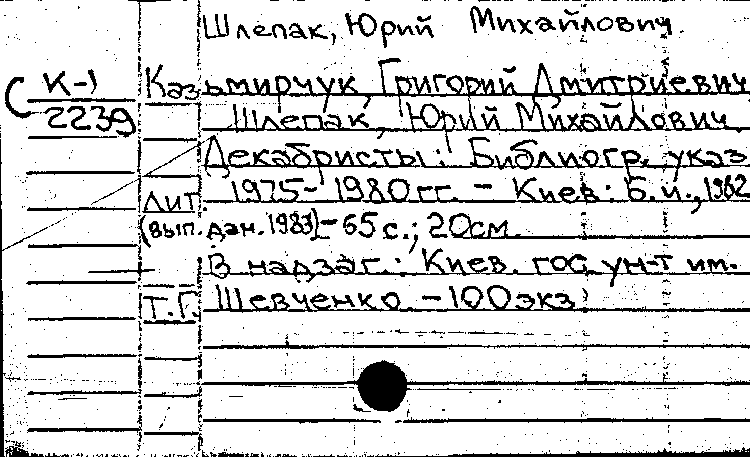 Шлепак, Юрий Михайлович.
К-1 Казьмирчук, Григорий Дмитриевич
2239 Шлепак, Юрий Михайлович.
Декабристы: Библиогр. указ.
лит. 1975-1980 гг. - Киев: Б.и., 1982
(вып. дан. 1983) - 65 с.; 20см.
В надзаг.: Киев. гос. ун-т им.
Т.Г. Шевченко. - 100 экз.